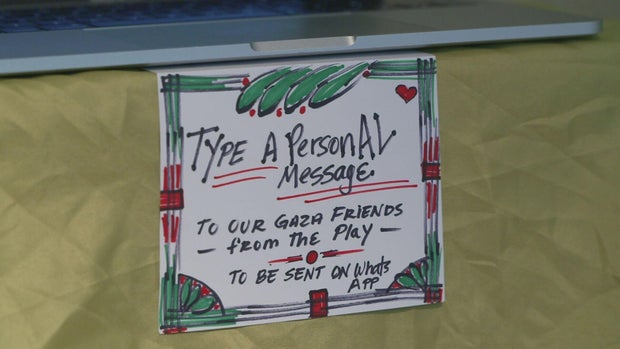 Type A PersonAL
Message
To our GAZA Friends
— from The Play —
To BE SENT ON Whats
APP